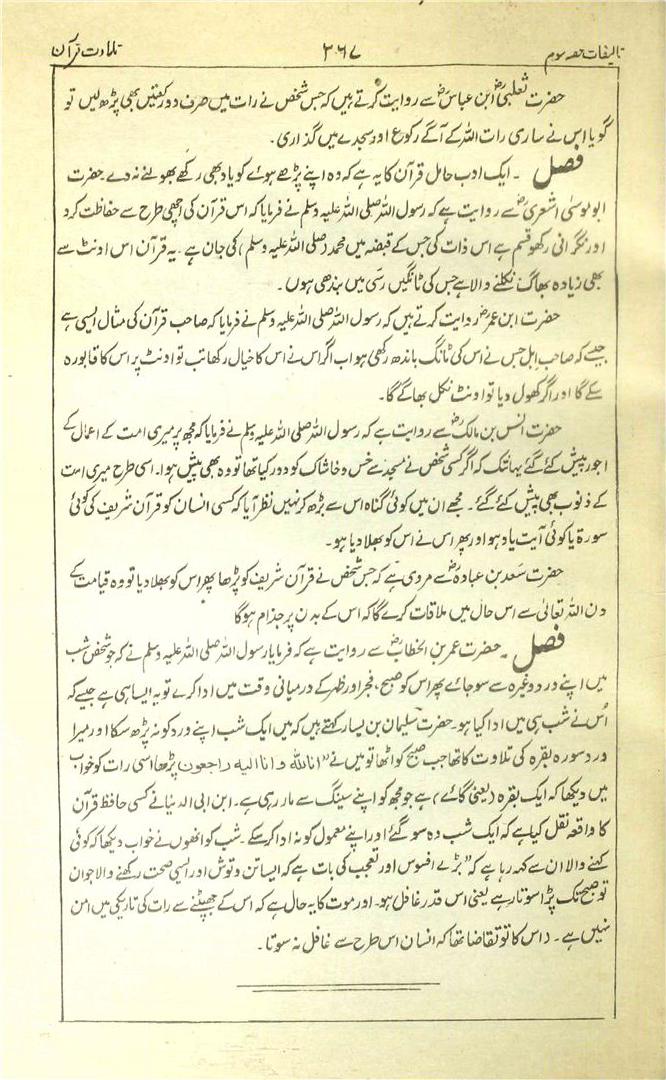 تالیفات حصہ سوم ۳۶۷ تلاوت قرآن
حضرت ثعلبیؒ ابن عباسؓ سے روایت کرتے ہیں کہ جس شخص نے رات میں صرف دو رکعتیں بھی پڑھ لیں تو
گویا اس نے ساری رات اللہ کے آگے رکوع اور سجدے میں گذاری۔
فصل ۔ ایک ادب حامل قرآن کا یہ ہے کہ وہ اپنے پڑھے ہوئے کو یاد بھی رکھے بھولنے نہ دے۔ حضرت
ابو موسیٰ اشعریؓ سے روایت ہے کہ رسول اللہ صلی اللہ علیہ وسلم نے فرمایا کہ اس قرآن کی اچھی طرح سے حفاظت کرو
اور نگرانی رکھو قسم ہے اس ذات کی جس کے قبضہ میں محمد (صلی اللہ علیہ وسلم) کی جان ہے۔ یہ قرآن اس اونٹ سے
بھی زیادہ بھاگ نکلنے والا ہے جس کی ٹانگیں رسی میں بندھی ہوں۔
حضرت ابن عمرؓ روایت کرتے ہیں کہ رسول اللہ صلی اللہ علیہ وسلم نے فرمایا کہ صاحب قرآن کی مثال ایسی ہے
جیسے کہ صاحب ابل جس نے اس کی ٹانگ باندھ رکھی ہو اب اگر اس نے اس کا خیال رکھا تب تو اونٹ پر اس کا قابو رہ
سکے گا اور اگر کھول دیا تو اونٹ نکل بھاگے گا۔
حضرت انس بن مالکؓ سے روایت ہے کہ رسول اللہ صلی اللہ علیہ وسلم نے فرمایا کہ مجھ پر میری امت کے اعمال کے
اجور پیش کئے گئے یہانتک کہ اگر کسی شخص نے مسجد سے خس و خاشاک کو دور کیا تھا تو وہ بھی پیش ہوا۔ اسی طرح میری امت
کے ذنوب بھی پیش کئے گئے۔ مجھے ان میں کوئی گناہ اس سے بڑھ کر نہیں نظر آیا کہ کسی انسان کو قرآن شریف کی کوئی
سورۃ یا کوئی آیت یاد ہو اور پھر اس نے اس کو بھلا دیا ہو۔
حضرت سعد بن عبادہؓ سے مروی ہے کہ جس شخص نے قرآن شریف کو پڑھا پھر اس کو بھلا دیا تو وہ قیامت کے
دن اللہ تعالیٰ سے اس حال میں ملاقات کرے گا کہ اس کے بدن پر جذام ہوگا
فصل ۔ حضرت عمر بن الخطابؓ سے روایت ہے کہ فرمایا رسول اللہ صلی اللہ علیہ وسلم نے کہ جو شخص شب
میں اپنے ورد وغیرہ سے سو جائے پھر اس کو صبح، فجر اور ظہر کے درمیانی وقت میں ادا کرے تو یہ ایسا ہی ہے جیسے کہ
اُس نے شب ہی میں ادا کیا ہو۔ حضرت سلیمان بن یسار کہتے ہیں کہ میں ایک شب اپنے ورد کو نہ پڑھ سکا اور میرا
ورد سورہ بقرہ کی تلاوت کا تھا جب صبح کو اٹھا تو میں نے "انا للہ و انا الیہ راجعون" پڑھا اسی رات کو خواب
میں دیکھا کہ ایک بقرہ (یعنی گائے) ہے جو مجھ کو اپنے سینگ سے مار رہی ہے۔ ابن ابی الدنیا نے کسی حافظ قرآن
کا واقعہ نقل کیا ہے کہ ایک شب وہ سو گئے اور اپنے معمول کو نہ ادا کر سکے۔ شب کو انھوں نے خواب دیکھا کہ کوئی
کہنے والا ان سے کہہ رہا ہے کہ "بڑے افسوس اور تعجب کی بات ہے کہ ایسا تن و توش اور ایسی صحت رکھنے والا جوان
تو صبح تک پڑا سوتا رہے یعنی اس قدر غافل ہو۔ اور موت کا یہ حال ہے کہ اس کے جھپٹنے سے رات کی تاریکی میں امن
نہیں ہے۔ (اس کا تو تقاضا تھا کہ انسان اس طرح سے غافل نہ سوتا۔